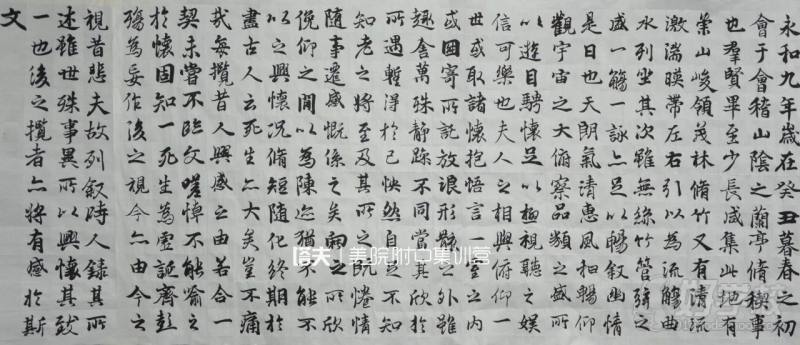 永和九年歲在癸丑暮春之初
會于會稽山陰之蘭亭脩稧事
也羣賢畢至少長咸集此地有
崇山峻領茂林脩竹又有清流
激湍暎帶左右引以為流觴曲
水列坐其次雖無絲竹管弦之
盛一觴一詠亦足以暢叙幽情
是日也天朗氣清惠風和暢仰
觀宇宙之大俯察品類之盛所
以遊目騁懷足以極視聽之娛
信可樂也夫人之相與俯仰一
世或取諸懷抱悟言一室之內
或因寄所託放浪形骸之外雖
趣舍萬殊靜躁不同當其欣於
所遇暫得於己怏然自足不
知老之將至及其所之既惓情
隨事遷感慨係之矣向之所欣
俛仰之間以為陳迹猶不能不
以之興懷況脩短隨化終期於
盡古人云死生亦大矣豈不痛
哉每攬昔人興感之由若合一
契未嘗不臨文嗟悼不能喻之
於懷固知一死生為虛誕齊彭
殤為妄作後之視今亦由今之
視昔悲夫故列叙時人錄其所
述雖世殊事異所以興懷其致
一也後之攬者亦將有感於斯
文
美院附中集训营